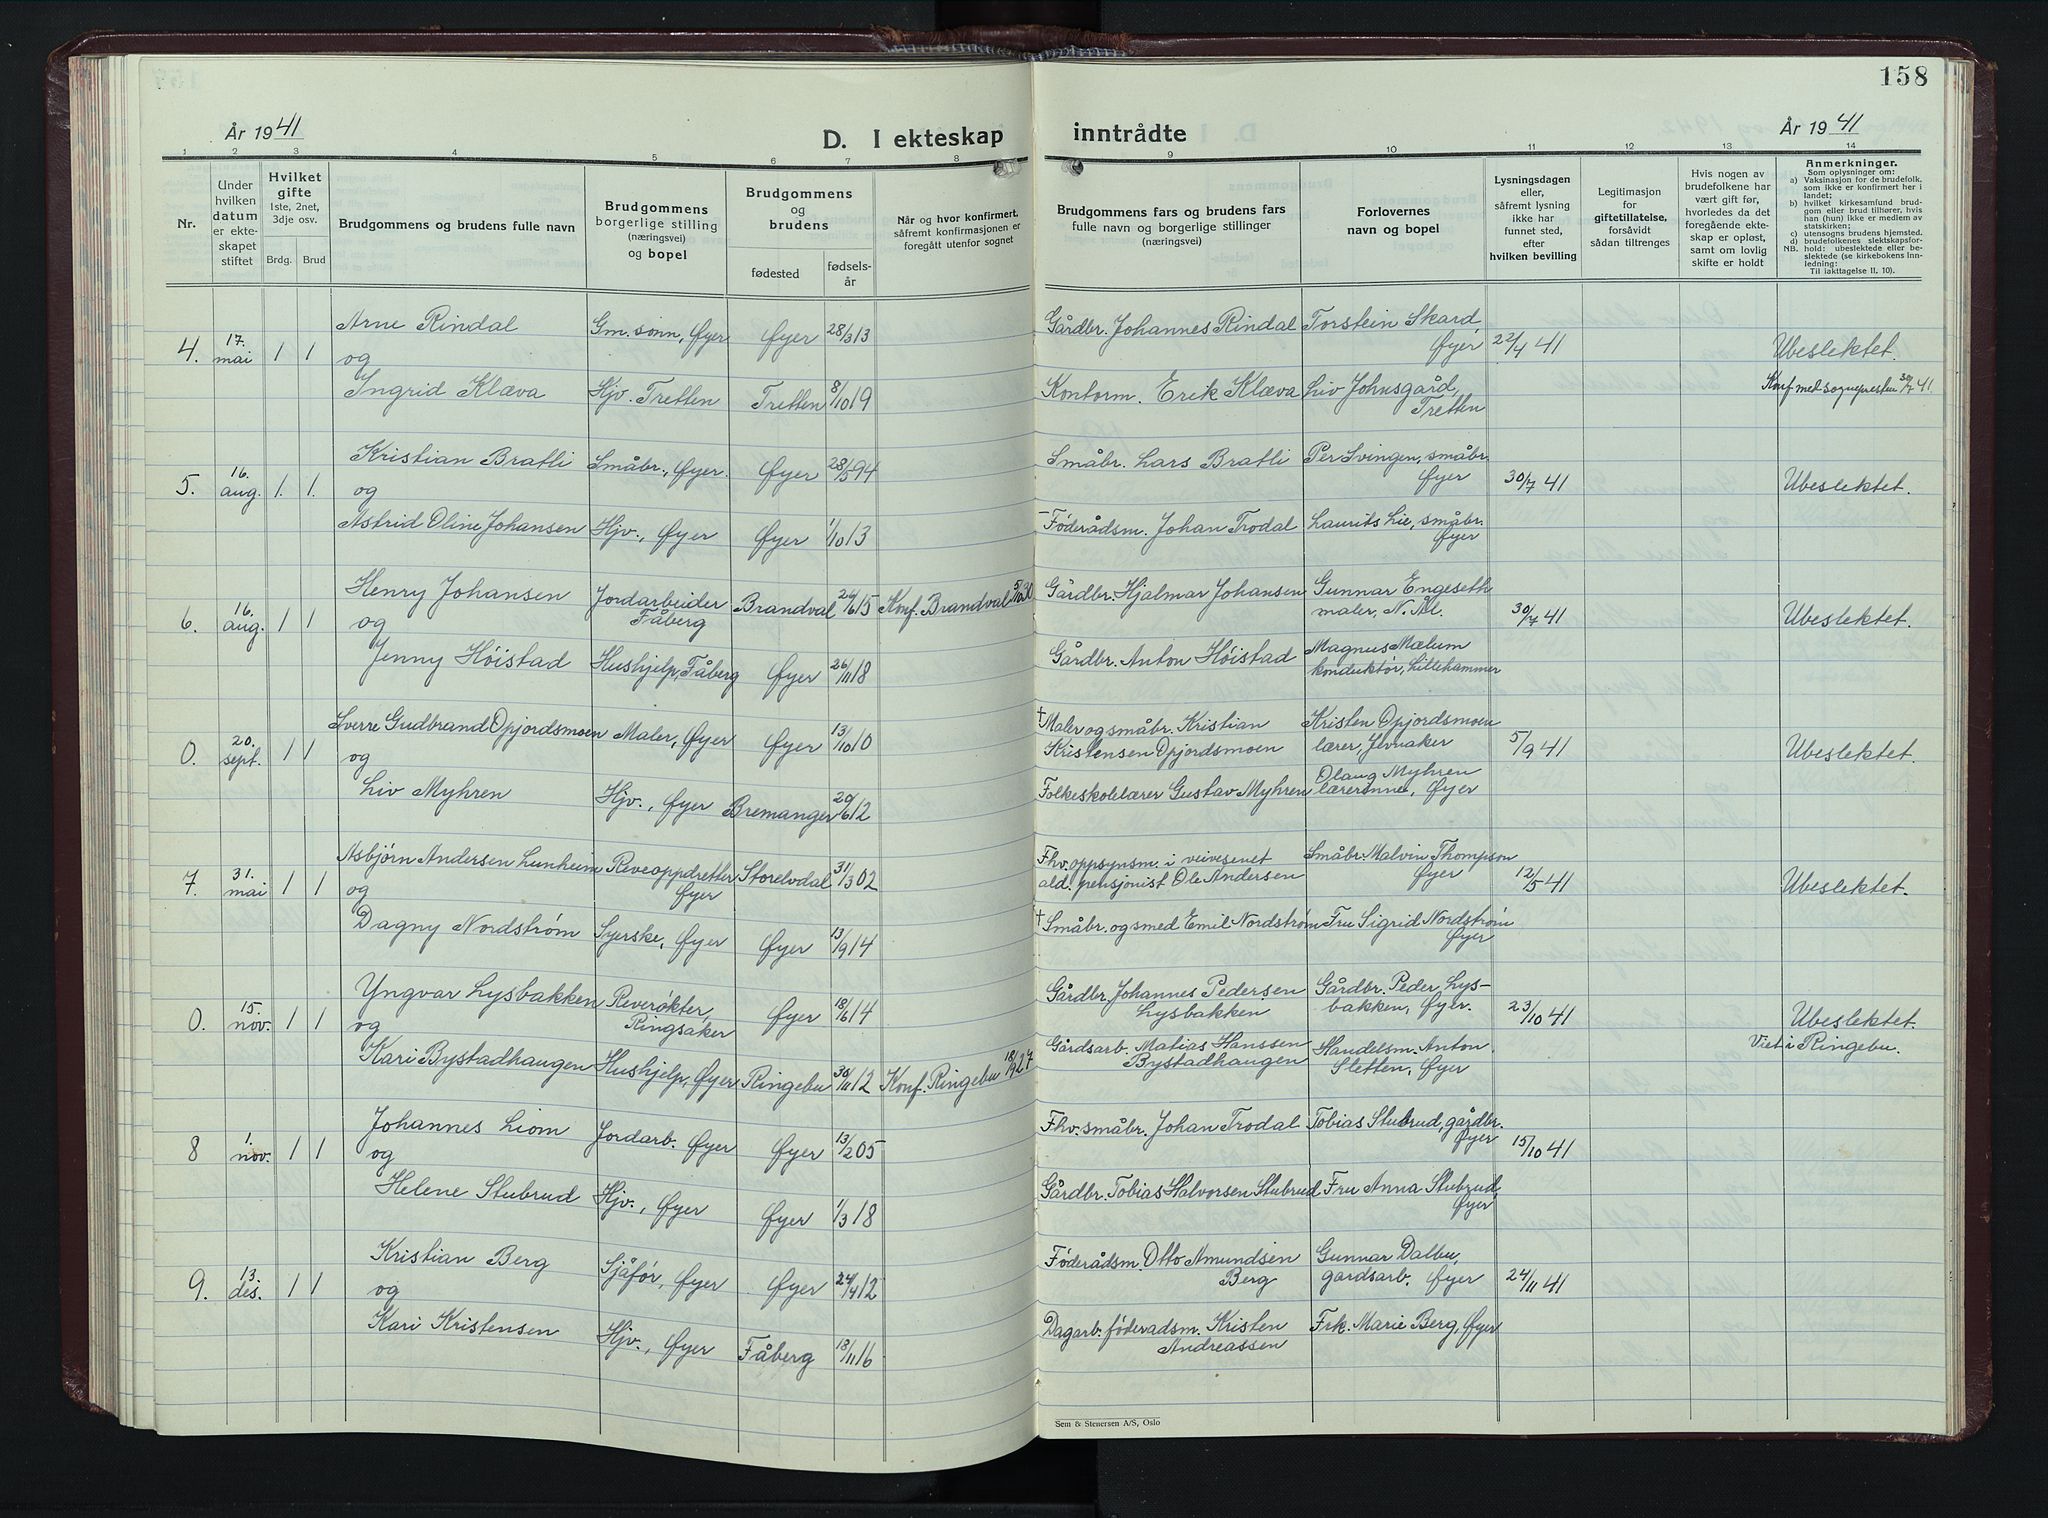 158
År 1941
D. I ekteskap inntrådte
År 1941
1 2 3 4 5 6 7 8 9 10 11 12 13 14
Nr.
Under hvilken datum er ekteskapet stiftet
Hvilket gifte 1ste, 2net, 3dje osv.
Brdg. Brud
Brudgommens og brudens fulle navn
Brudgommens borgerlige stilling (næringsvei) og bopel
Brudgommens og brudens
fødested
fødselsår
Når og hvor konfirmert, såfremt konfirmasjonen er foregått utenfor sognet
Brudgommens fars og brudens fars fulle navn og borgerlige stillinger (næringsvei)
Forlovernes navn og bopel
Lysningsdagen eller, såfremt lysning ikke har funnet sted, efter hvilken bevilling
Legitimasjon for giftetillatelse, forsåvidt sådan tiltrenges
Hvis nogen av brudefolkene har vært gift før, hvorledes da det foregående ekteskap er opløst, samt om lovlig skifte er holdt
Anmerkninger.
Som oplysninger om:
a) Vaksinasjon for de brudefolk, som ikke er konfirmert her i landet;
b) hvilket kirkesamfund brudgom eller brud tilhører, hvis han (hun) ikke er medlem av statskirken;
c) utensogns brudens hjemsted.
d) brudefolkenes slektskapsforhold: ubeslektede eller beslektede (se kirkebokens Innledning: Til iakttagelse II, 10).
NB.
4. 17. mai 1 1 Arne Rindal Gm. sønn, Øyer Øyer 28/3 13 Gårdbr. Johannes Rindal Torstein Skard, Øyer 22/4 41 Ubeslektet.
og
Ingrid Klæva Hjv. Tretten Tretten 8/10 19 Kontorm. Erik Klæva Liv Johnsgård, Tretten Konf med sognepresten 30/7 41.
5. 16. aug. 1. 1. Kristian Bratli Småbr., Øyer. Øyer 28/5 94 Småbr. Lars Bratli Per Svingen, småbr. Øyer 30/7 41 Ubeslektet.
og
Astrid Oline Johansen Hjv., Øyer Øyer 1/10 13 Føderådsm. Johan Trodal Laurits Lie, småbr. Øyer
6. 16. aug. 1 1 Henry Johansen Jordarbeider Fåberg Brandval 26/6 15 Konf. Brandval 5/10 30 Gårdbr. Hjalmar Johansen Gunnar Engeseth maler, N. Ål. 30/7 41 Ubeslektet.
og
Jenny Höistad Hushjelp, Fåberg Øyer 26/11 18 Gårdbr. Anton Höistad Magnus Mælum konduktör, Lillehammer
0. 20. sept. 1 1 Sverre Gudbrand Opjordsmoen Maler, Øyer Øyer 13/10 10 † Maler og småbr. Kristian Kristensen Opjordsmoen Kristen Opjordsmoen lærer, Jevnaker 5/9 41 Ubeslektet.
og
Liv Myhren Hjv., Øyer Bremanger 20/6 12 Folkeskolelærer Gustav Myhren Olaug Myhren lærerinne, Øyer
7. 31. mai 1 1 Asbjørn Andersen Lunheim Reveoppdretter Øyer Storelvdal 31/3 02 Fhv. oppsynsm. i veivesenet ald. pensjonist Ole Andersen Småbr. Malvin Thompson Øyer 12/5 41 Ubeslektet.
og
Dagny Nordstrøm Syerske, Øyer Øyer 13/9 14 † Småbr. og smed Emil Nordstrøm Fru Sigrid Nordstrøm Øyer
0. 15. nov. 1 1 Yngvar Lysbakken Reverøkter, Ringsaker Øyer 18/6 14 Gårdbr. Johannes Pedersen Lysbakken Gårdbr. Peder Lysbakken, Øyer. 23/10 41 Ubeslektet.
og
Kari Bystadhaugen Hushjelp, Øyer Ringebu 30/11 12 Konf. Ringebu 18/9 27 Gårdsarb. Matias Hanssen Bystadhaugen Handelsm. Anton Sletten, Øyer Viet i Ringebu.
8 1. nov. 1 1 Johannes Liom Jordarb. Øyer Øyer 13/2 05 Fhv. småbr. Johan Trodal Tobias Stubrud, gårdbr. Øyer 15/10 41
og
Helene Stubrud Hjv., Øyer Øyer 1/3 18 Gårdbr. Tobias Halvorsen Stubrud Fru Anna Stubrud, Øyer
9. 13. des. 1 1 Kristian Berg Sjåfør, Øyer Øyer 24/4 12 Føderådsm. Otto Amundsen Berg Gunnar Dalbu, gardsarb. Øyer 24/11 41
og
Kari Kristensen Hjv., Øyer Fåberg 18/11 16 Dagarb. føderadsm. Kristen Andreassen Frk. Marie Berg, Øyer
Sem & Stenersen A/S, Oslo